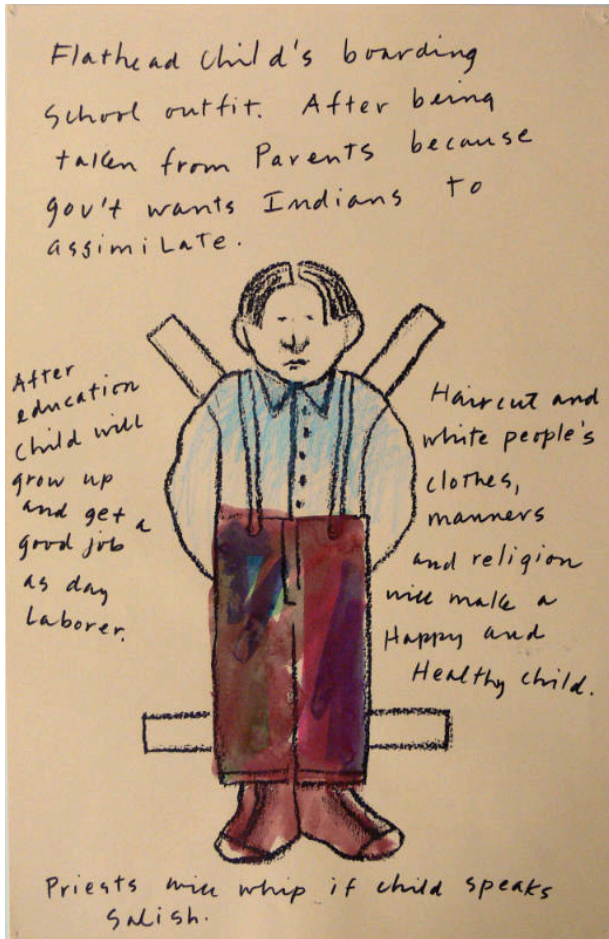 Flathead child's boarding
School outfit. After being
taken from Parents because
gov't wants Indians to
assimilate.
After
education
child will
grow up
and get a
good job
as day
Laborer.
Haircut and
white people's
clothes,
manners
and religion
will make a
Happy and
Healthy child.
Priests will whip if child speaks
Salish.